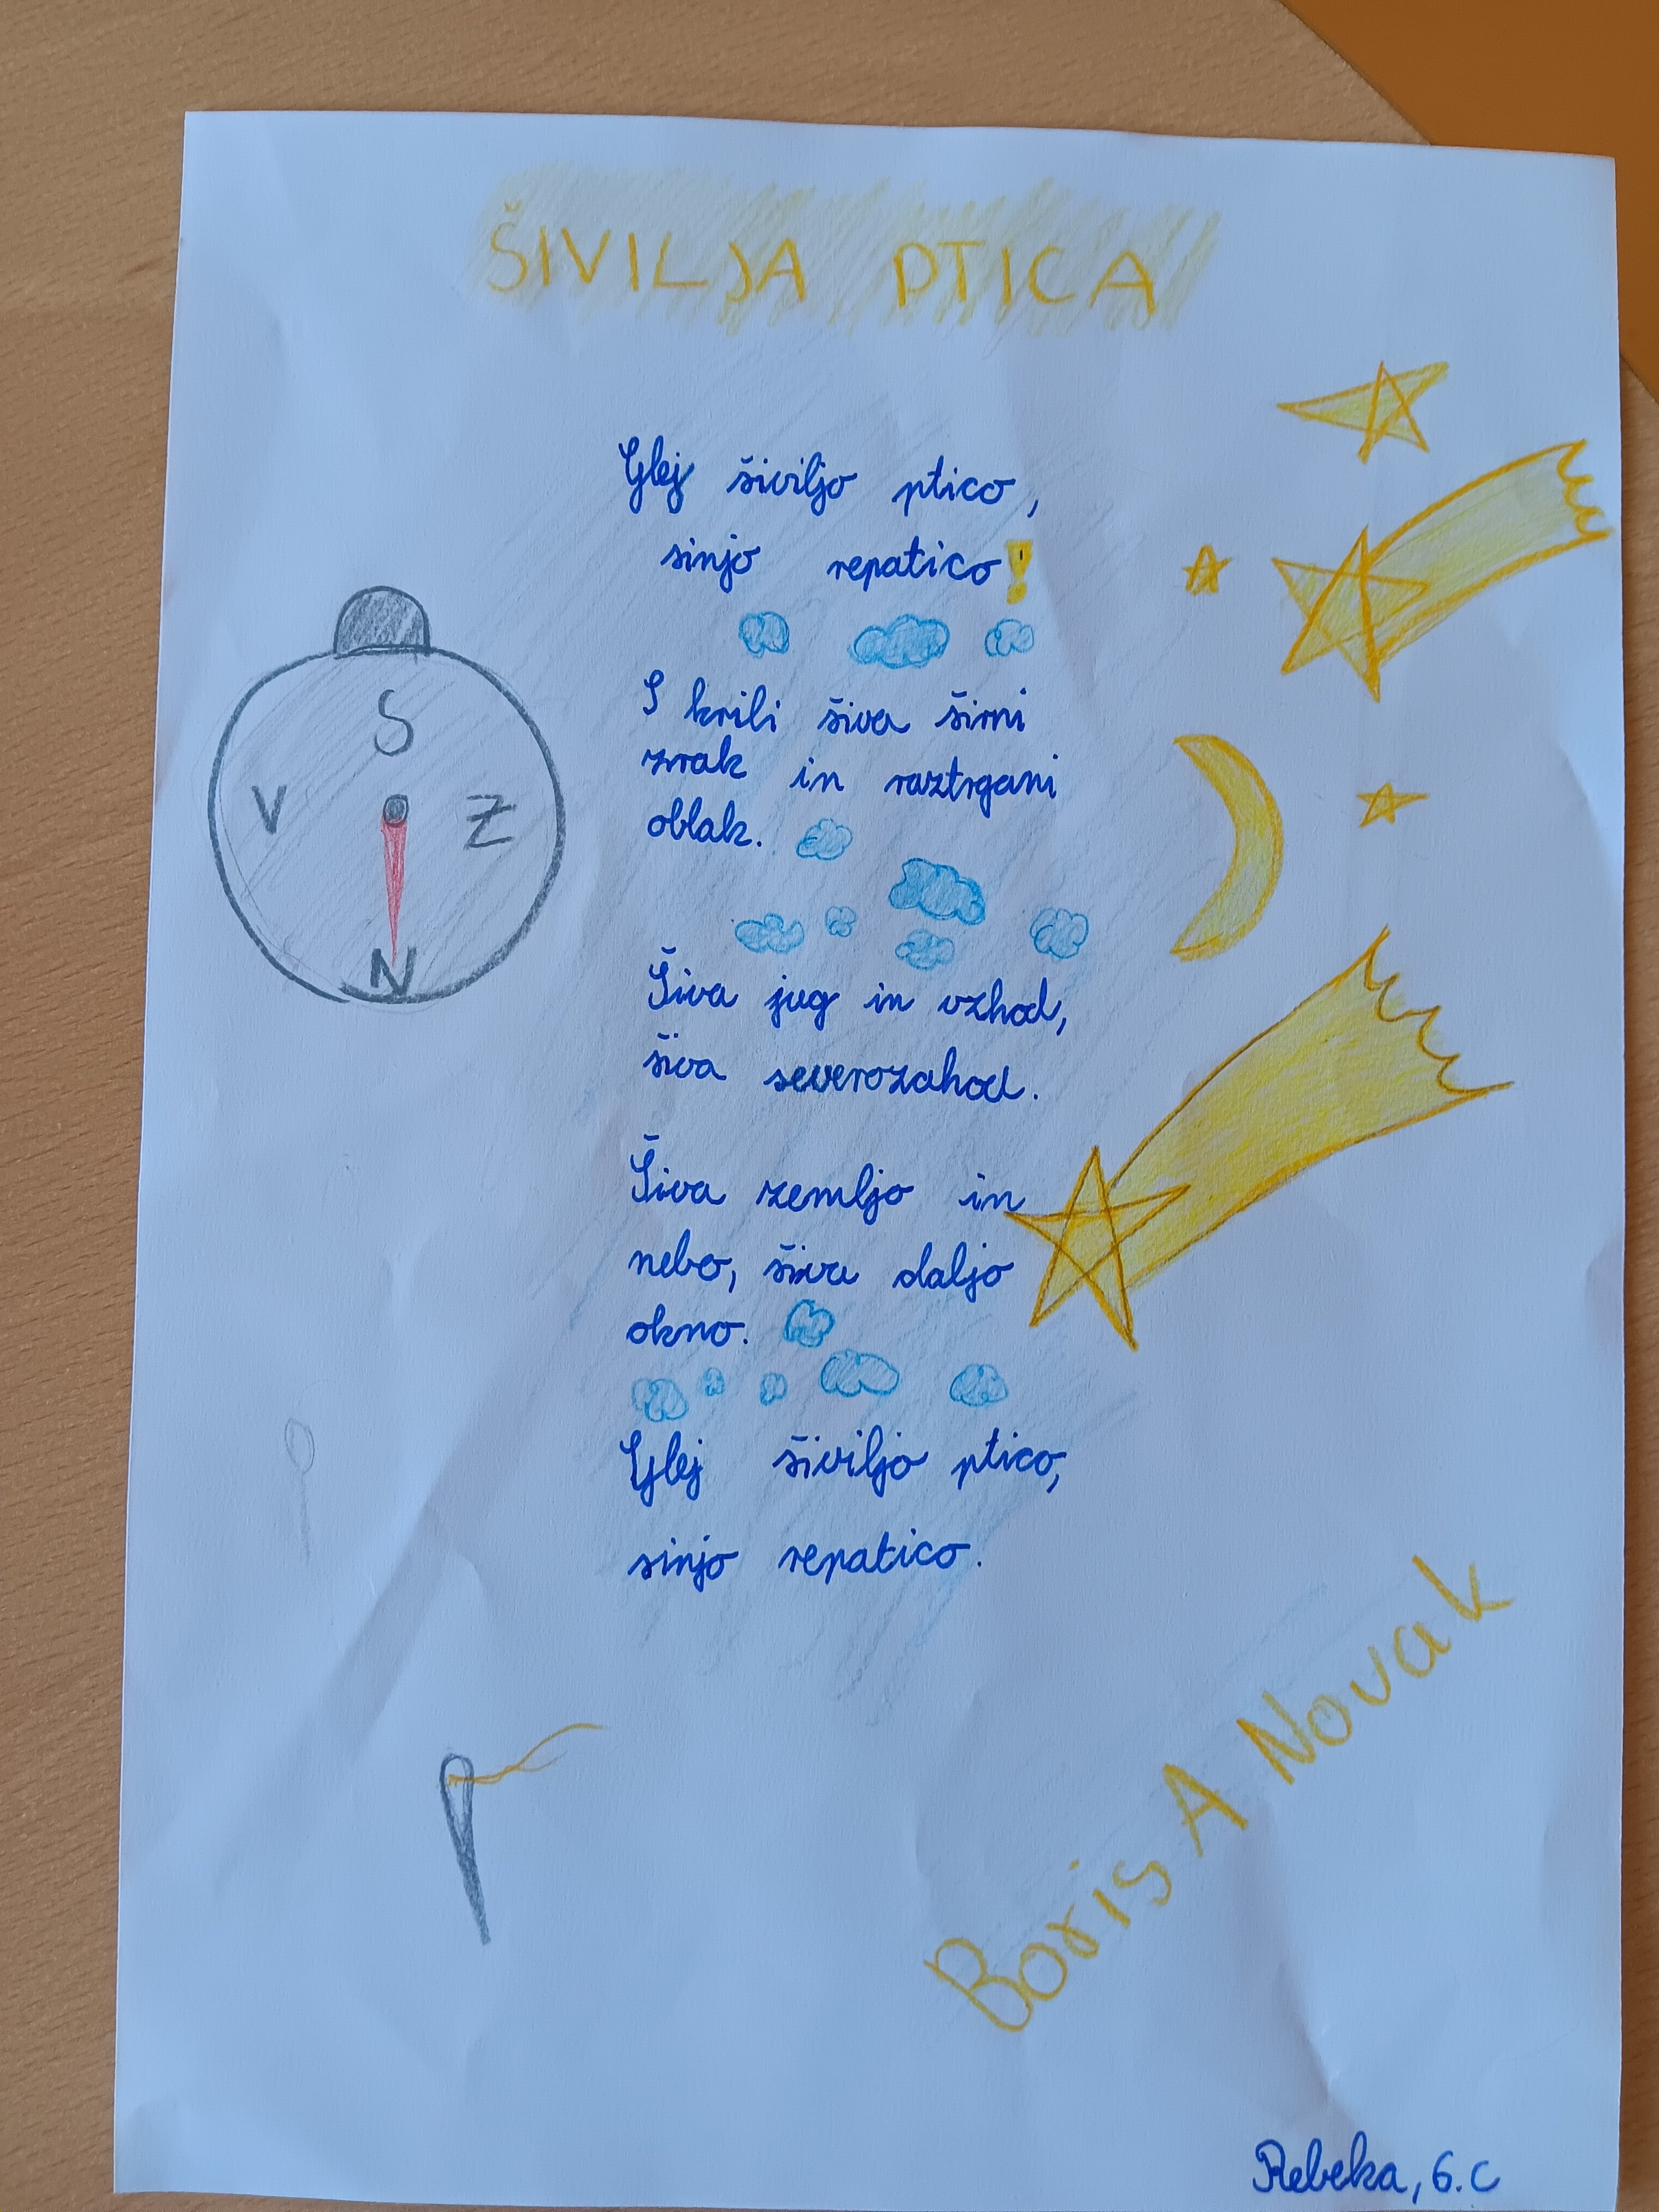 ŠIVILJA PTICA
Glej šiviljo ptico,
sinjo repatico!
S krili šiva širni
zrak in raztrgani
oblak.
S
V Z
N
Šiva jug in vzhod,
šiva severozahod.
Šiva zemljo in
nebo, šiva daljo
okno.
Glej šiviljo ptico,
sinjo repatico.
Boris A Novak
Rebeka, 6.c